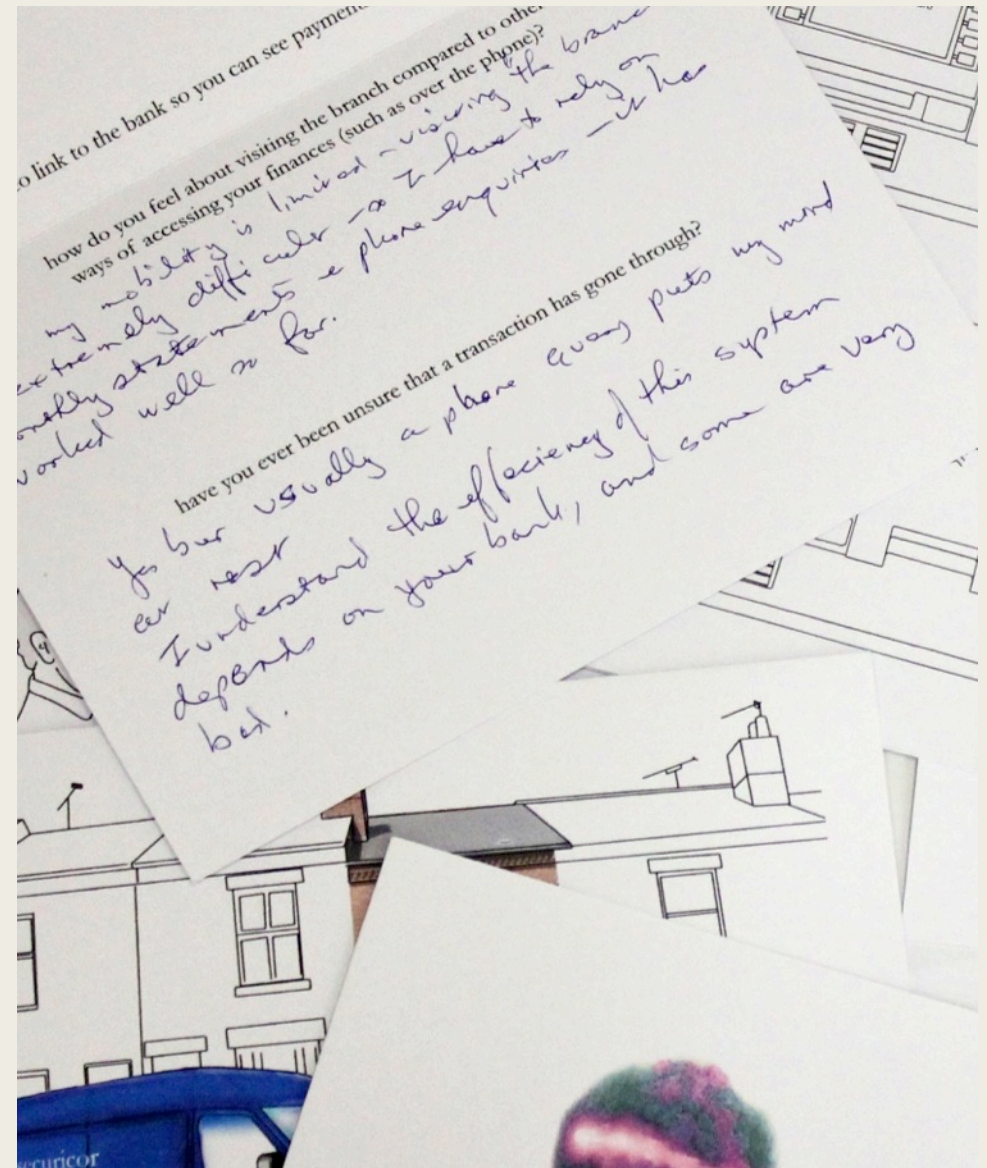 o link to the bank so you can see payment
how do you feel about visiting the branch compared to other
ways of accessing your finances (such as over the phone)?
my mobility is limited - visiting the branc
extremely difficult - so I have to rely on
onthly statements + phone enquiries - it has
worked well so far.
have you ever been unsure that a transaction has gone through?
Yes but usually a phone query puts my mind
at rest
I understand the effeciency of this system
depends on your bank, and some are very
bad.
ecuricor